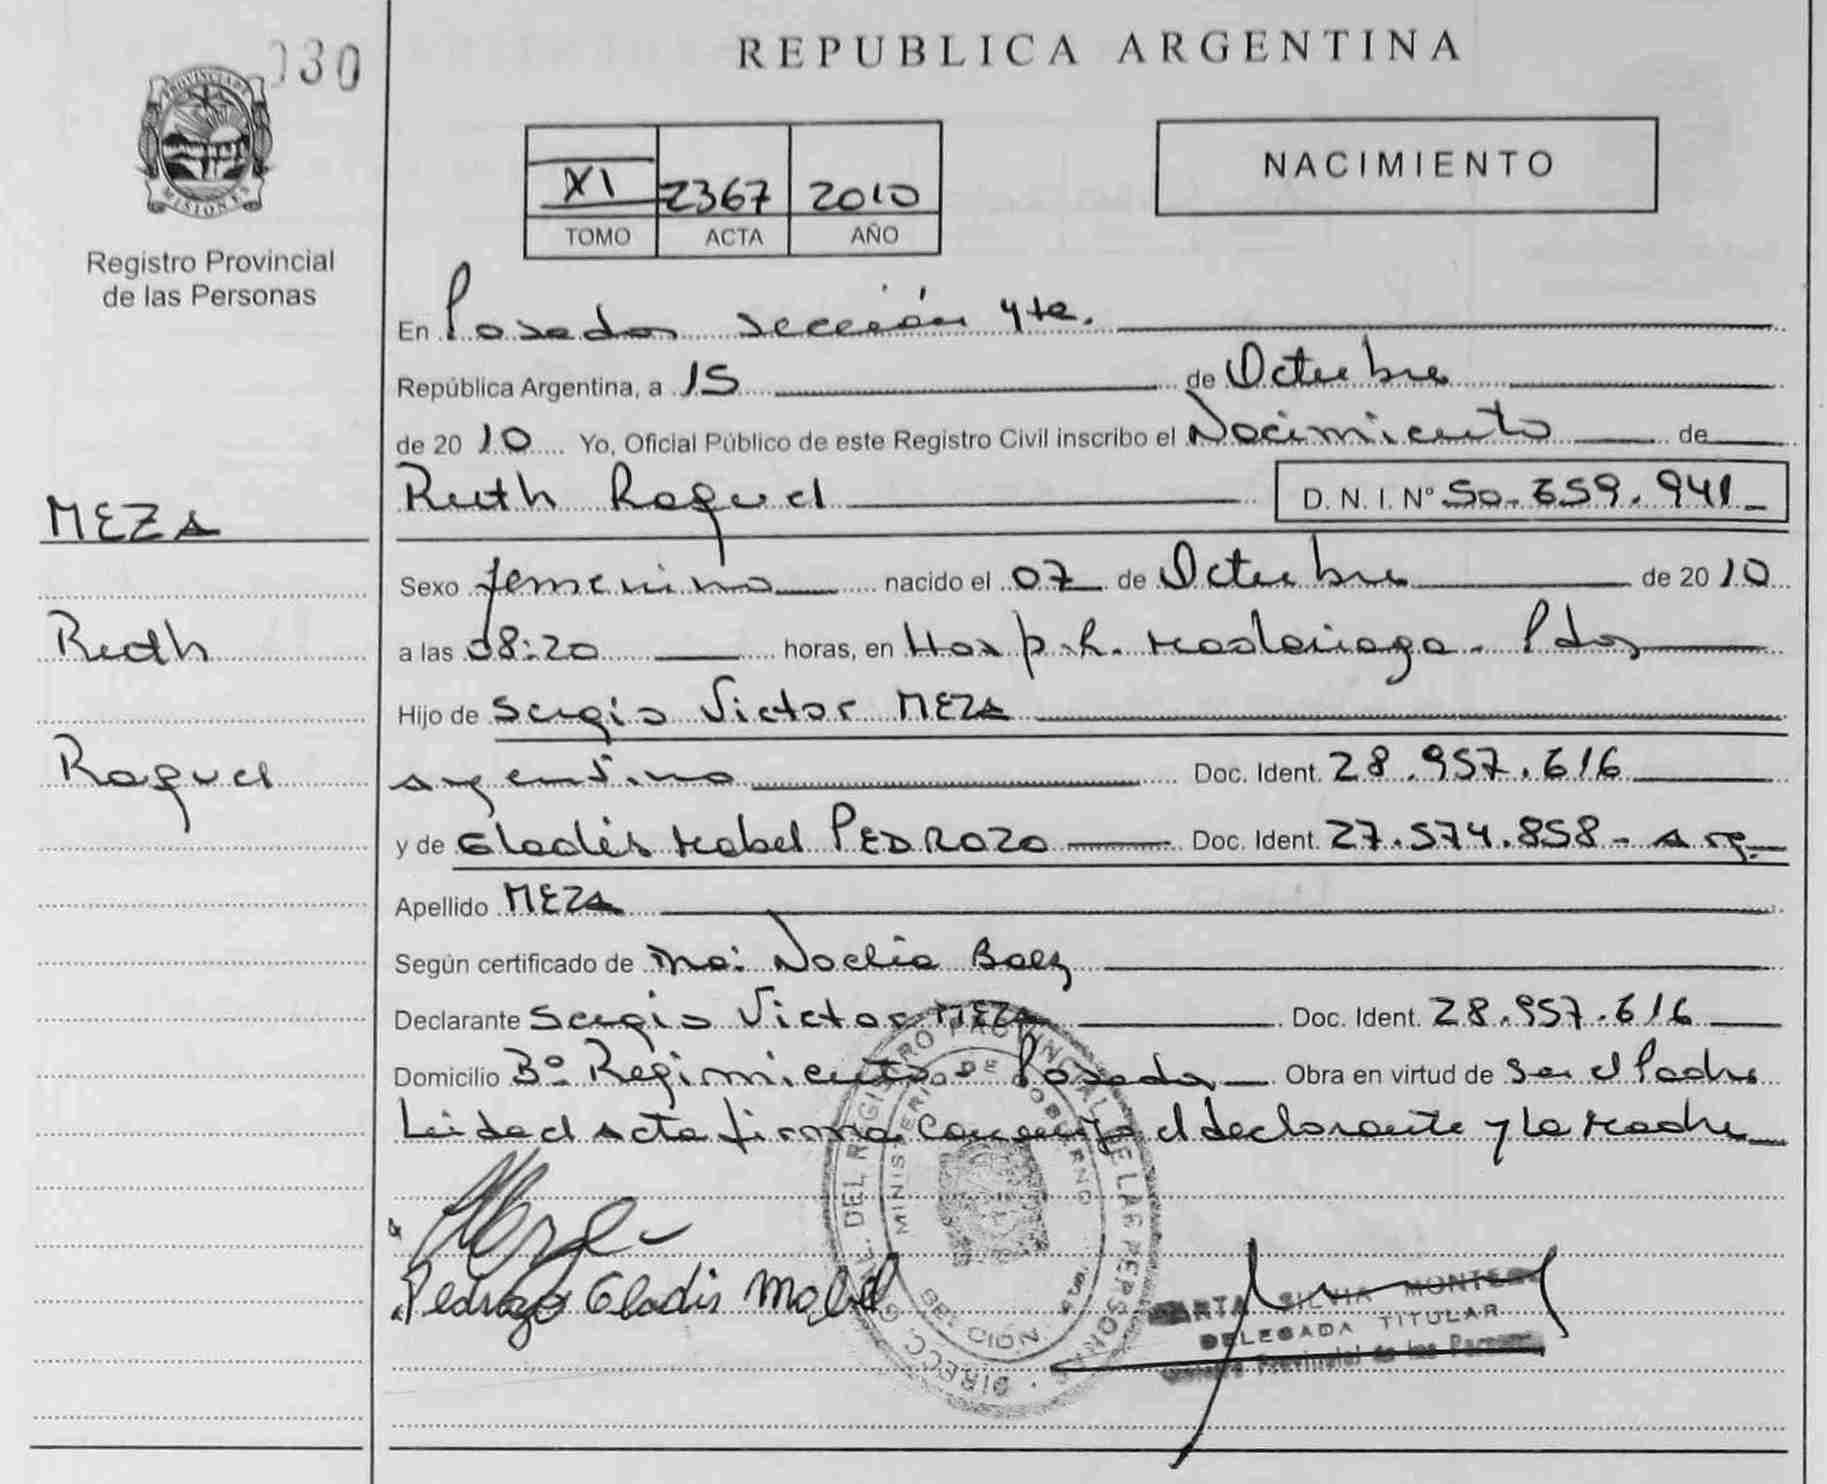 030
REPUBLICA ARGENTINA
PROVINCIA DE
MISIONES
Registro Provincial
de las Personas
XI 2367 2010
TOMO ACTA AÑO
NACIMIENTO
En Posadas sección 4ta.
República Argentina, a 15 de Octubre
de 20 10 Yo, Oficial Público de este Registro Civil inscribo el Nacimiento de
Ruth Raquel D. N. I. Nº 50.659.941
MEZA
Sexo femenino nacido el 07 de Octubre de 20 10
Ruth
a las 08:20 horas, en Hosp. R. Madariaga. Pdas
Hijo de Sergio Victor MEZA
Raquel
argentino Doc. Ident. 28.957.616
y de Gladis Mabel PEDROZO Doc. Ident. 27.574.858 - arg.
Apellido MEZA
Según certificado de Ma: Noelia Baez
Declarante Sergio Victor MEZA Doc. Ident. 28.957.616
Domicilio Bº Regimiento - Posadas Obra en virtud de ser el Padre
Leida el acta firma conmigo el declarante y la Madre
Meza
Pedrozo Gladis Mabel
DIRECC. GRAL. DEL REGISTRO PROVINCIAL DE LAS PERSONAS
MINISTERIO DE GOBIERNO
MARTA SILVIA MONTE
DELEGADA TITULAR
Registro Provincial de las Personas